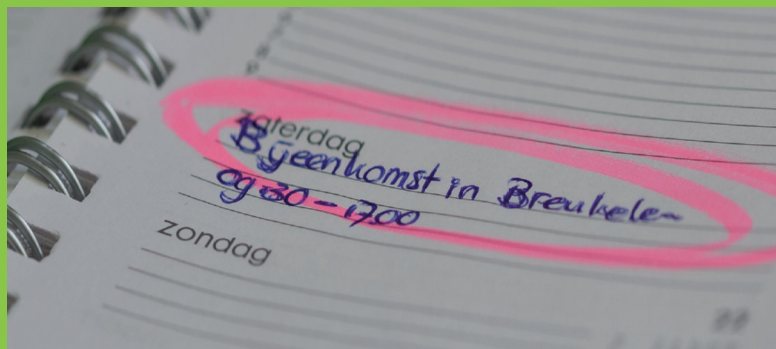 zaterdag
Bijeenkomst in Breukelen
09.30 - 17.00
zondag